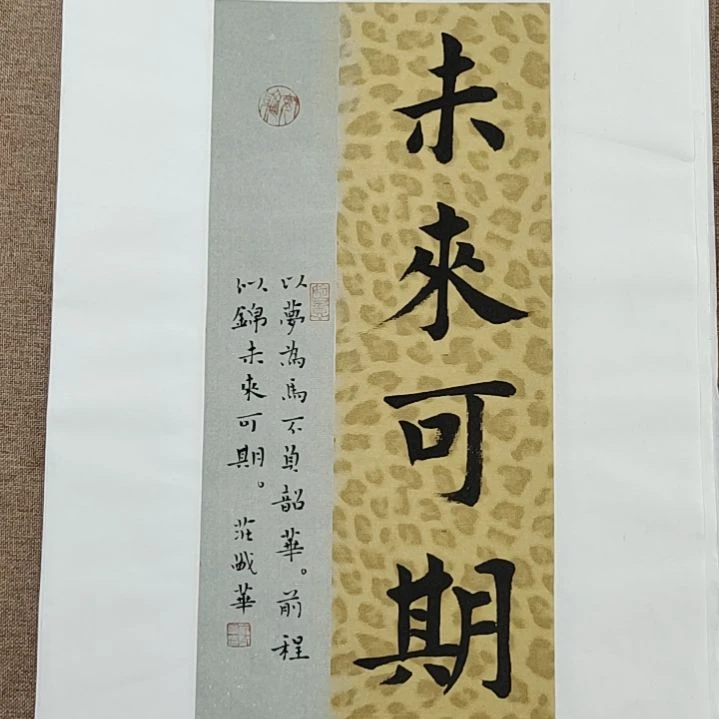 未來可期
以夢為馬不負韶華。前程
似錦未來可期。莊
華